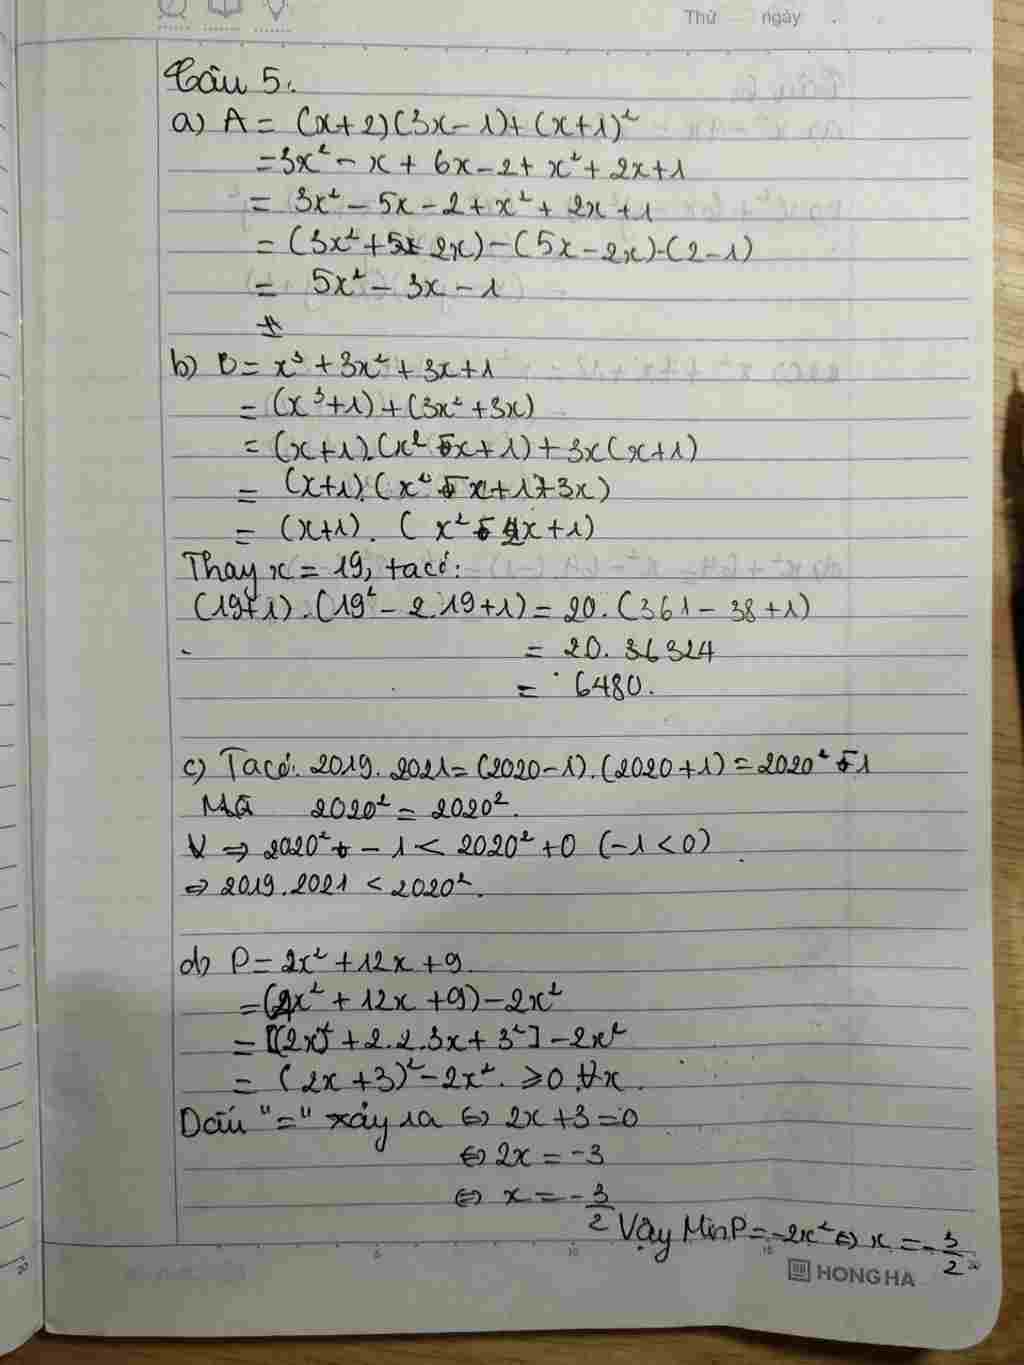 Thứ ngày
Câu 5.
a) A = (x+2)(3x-1)+(x+1)²
= 3x² - x + 6x - 2 + x² + 2x + 1
= 3x² - 5x - 2 + x² + 2x + 1
= (3x² + 2x) - (5x - 2x) - (2-1)
= 5x² - 3x - 1
b) B = x³ + 3x² + 3x + 1
= (x³+1) + (3x² + 3x)
= (x+1).(x² - x + 1) + 3x(x+1)
= (x+1).(x² - x + 1 + 3x)
= (x+1). (x² - 2x + 1)
Thay x = 19, ta có:
(19+1).(19² - 2.19+1) = 20.(361 - 38 + 1)
= 20. 324
= 6480.
c) Ta có: 2019. 2021 = (2020-1).(2020+1) = 2020² - 1
Mà 2020² = 2020².
⇒ 2020² - 1 < 2020² + 0 (-1 < 0)
⇒ 2019.2021 < 2020².
d) P = 2x² + 12x + 9.
= (4x² + 12x + 9) - 2x²
= [(2x)² + 2.2.3x + 3²] - 2x²
= (2x+3)² - 2x². ⩾0 ∀x.
Dấu "=" xảy ra ⇔ 2x + 3 = 0
⇔ 2x = -3
⇔ x = -3/2
Vậy Min P = -2x² ⇔ x = -3/2
5 10 15
HONG HA
20